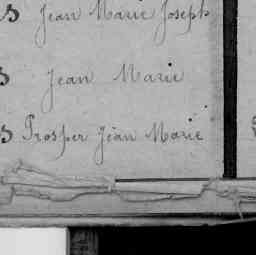 s Jean Marie Joseph
s Jean Marie
s Prosper Jean Marie